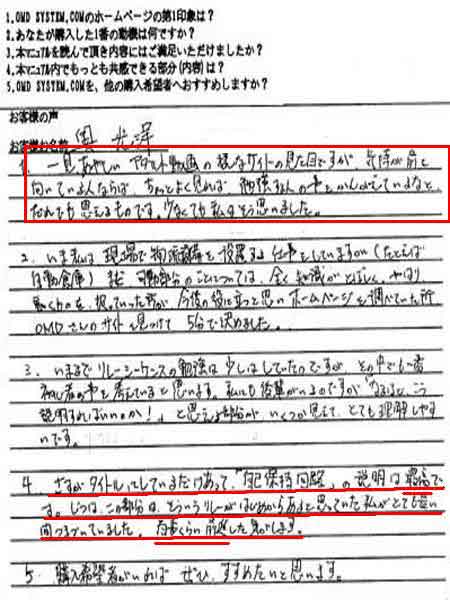 1.OMD SYSTEM.COMのホームページの第1印象は？
2.あなたが購入した1番の動機は何ですか？
3.本マニュアルを読んで頂き内容にはご満足いただけましたか？
4.本マニュアル内でもっとも共感できる部分(内容)は？
5.OMD SYSTEM.COMを、他の購入希望者へおすすめしますか？
お客様の声
お客様お名前 奥 光澤
1. 一見あやしい アダルト動画の様なサイトの見た目ですが、気持が前に
向いている人ならば、ちょっとよく見れば 勉強する人の事をかんがえているなと、
だれでも思えるものです。少なくても私はそう思いました。
2. いま私は 現場で物流機器を設置する仕事をしていますが(たとえば
自動倉庫) 可動部分のことについては、全く知識がとぼしく、やはり
動くものを、扱っていった方が 今後の役に立つと思い ホームページを調べていた所
OMDさんのサイトを見つけて 5分で決めました。
3. いままでリレーシーケンスの勉強は少しはしてたのですが、その中でも一番
初心者の事を考えていると思います。私にも後輩がいるのですが "なるほど、こう
説明すればいいのか!" と思える部分が いくつか見えて、とても理解しやす
いです。
4. さすがタイトルにしているだけあって、「自己保持回路」の説明は最高で
す。じつは、この部分は、そういうリレーがはじめからあると思っていた私がとても長い
間つまづいていました。 前進した気がします。
5. 購入希望者がいれば ぜひ、すすめたいと思います。